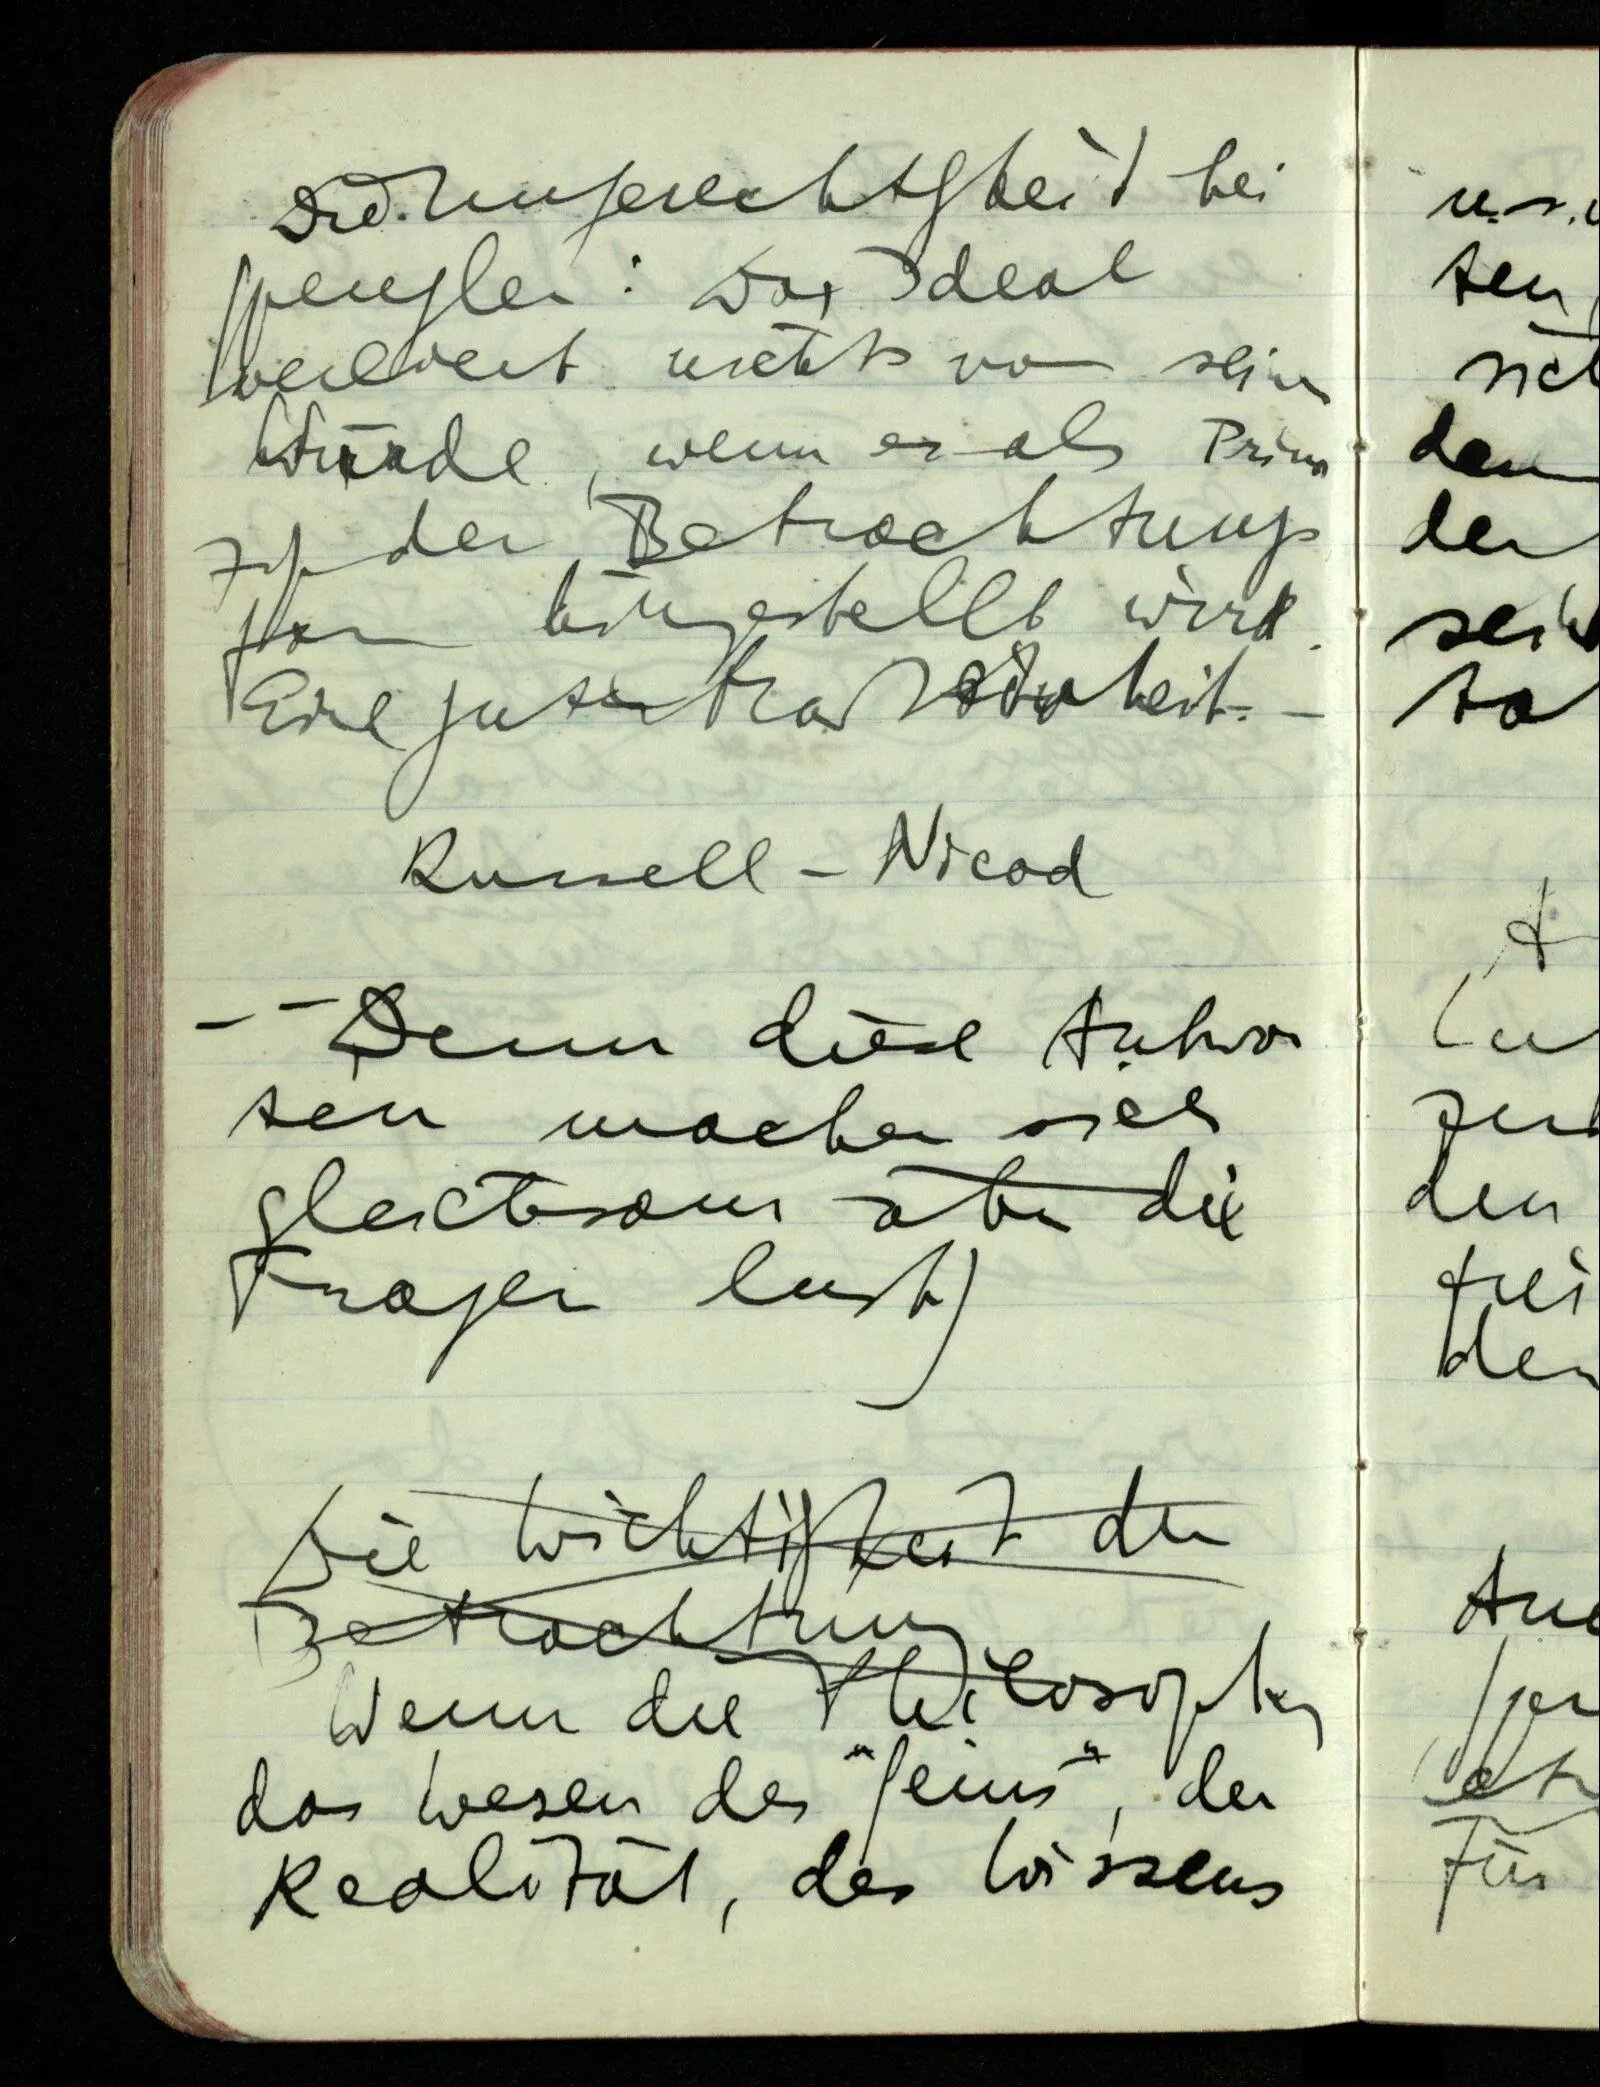 Die Ungerechtigkeit bei
Spengler: Das Ideal
verliert nichts von seiner
Würde, wenn es als Prin
zip der Betrachtungs
form hingestellt wird.
Eine gute Meßbarkeit. –
Russell – Nicod
– – Denn diese Antwor
ten machen sich
gleichsam über die
Fragen lustig)
Die Wichtigkeit der
Betrachtung
Wenn die Philosophen
das Wesen des "Seins", der
Realität, des Wissens
u.s.w
ten
sich
dem
der
den
den
Für